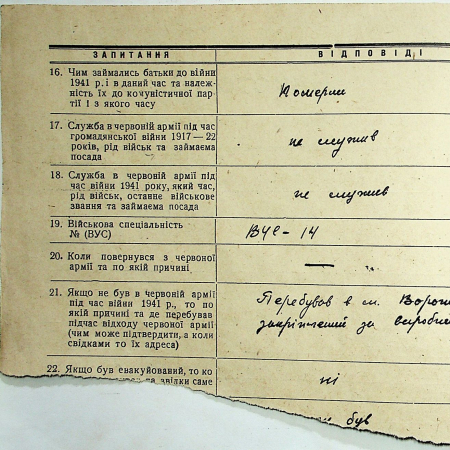 ЗАПИТАННЯ ВІДПОВІДІ
16. Чим займались батьки до війни
1941 р. і в даний час та належ-
ність їх до комуністичної пар-
тії і з якого часу
Померли
17. Служба в червоній армії під час
громадянської війни 1917—22
років, рід військ та займаєма
посада
не служив
18. Служба в червоній армії під
час війни 1941 року, який час,
рід військ, останнє військове
звання та займаєма посада
не служив
19. Військова спеціальність
№ (ВУС)
ВУС - 14
20. Коли повернувся з червоної
армії та по якій причині
—
21. Якщо не був в червоній армії
під час війни 1941 р., то по
якій причині та де перебував
підчас відходу червоної армії
(чим може підтвердити, а коли
свідками то їх адреса)
Перебував в м. Ворош
закріплений за виробни
22. Якщо був евакуйований, то ко
та звідки саме
ні
був